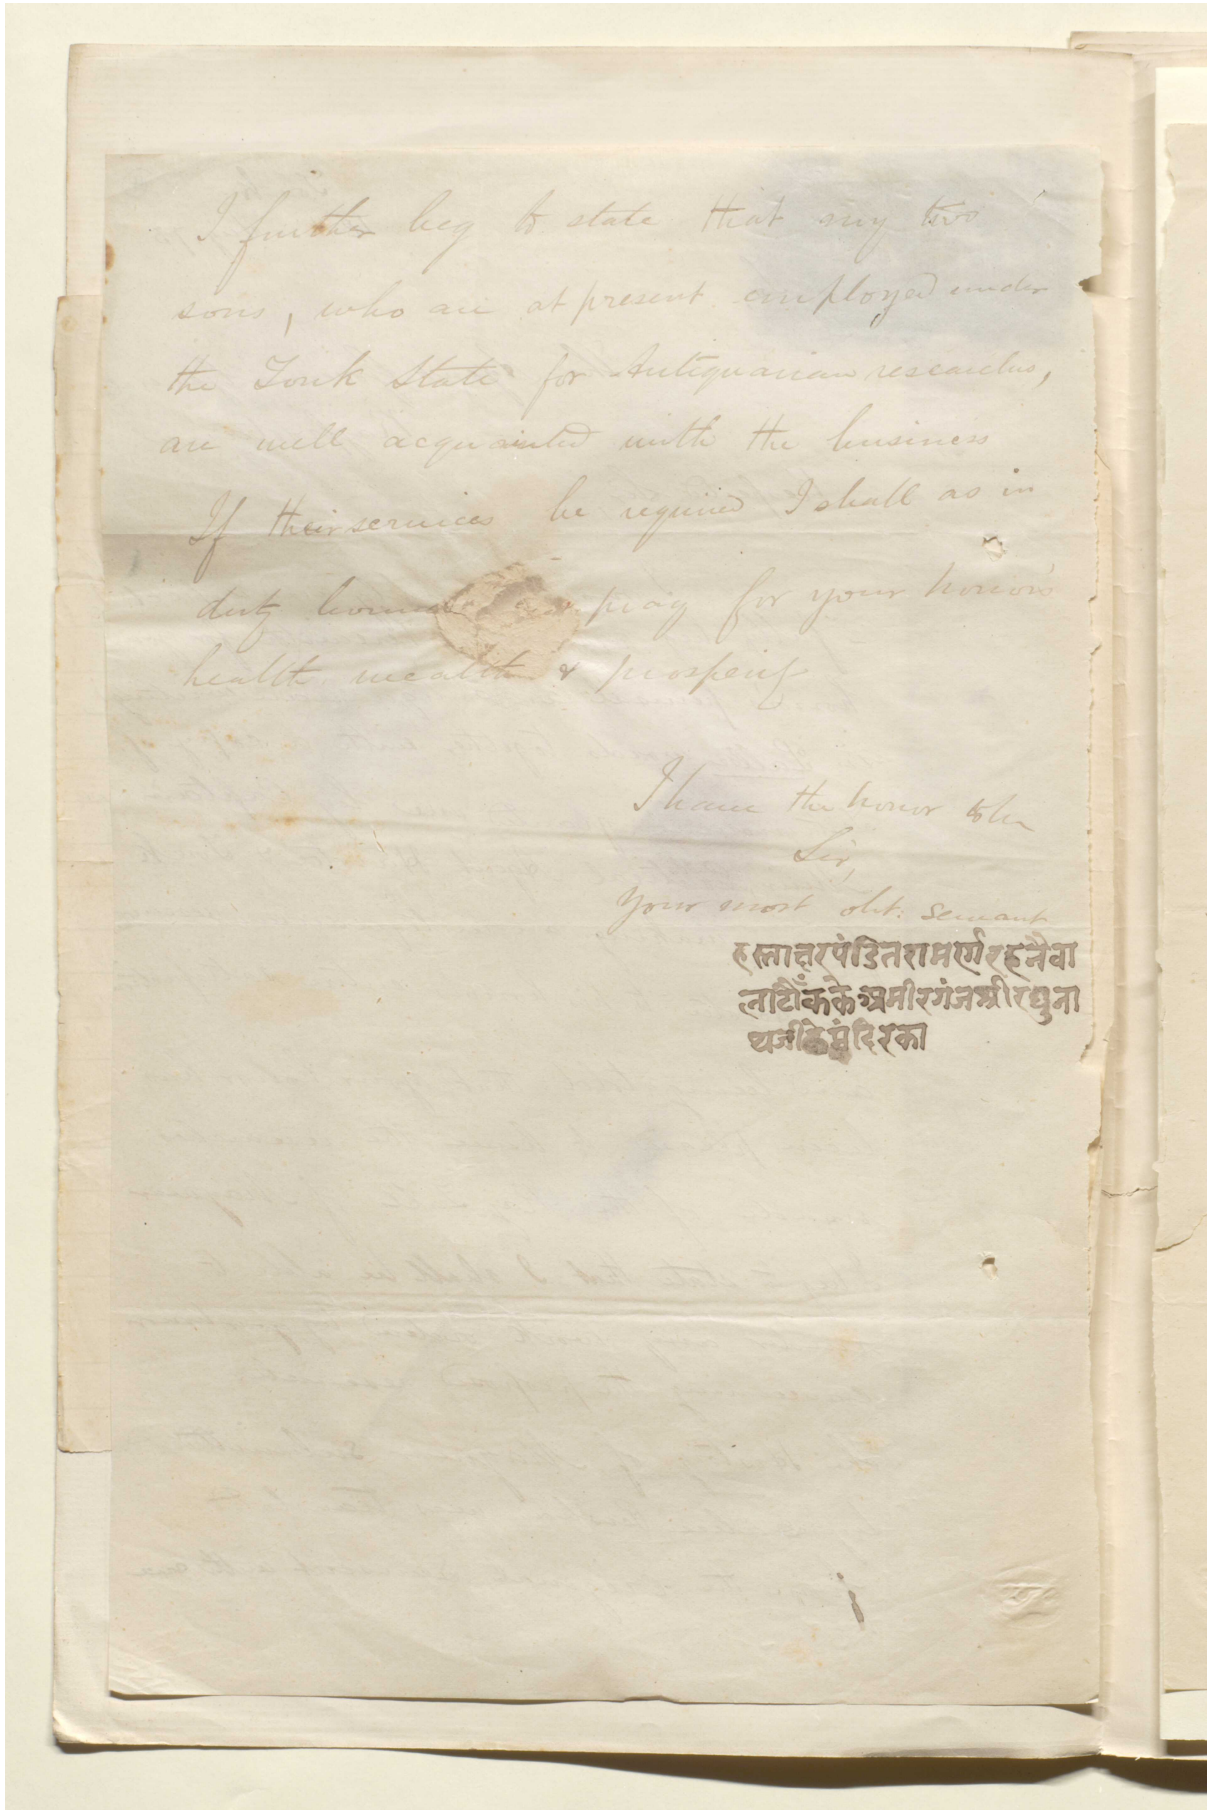 I further beg to state that my two
sons, who are at present employed under
the Tonk State for Antiquarian researches,
are well acquainted with the business
If their services be required I shall as in
duty bound pray for your honor's
health wealth & prosperity
I have the honor to be
Sir,
Your most obt: servant
हस्तात्तरपंडितराम रहनेवा
लाटौंककेअमीरगंजश्रीरघुना
थजीकेमंदिरका